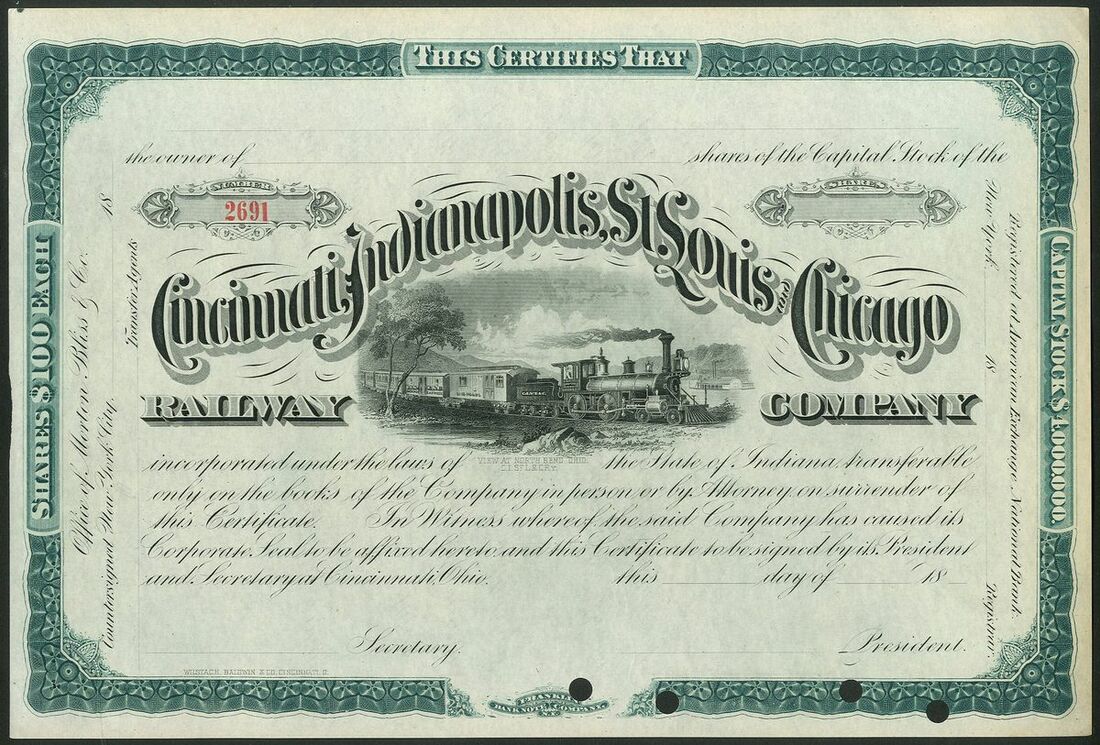 THIS CERTIFIES THAT
the owner of shares of the Capital Stock of the
NUMBER
2691
SHARES
Cincinnati, Indianapolis, St. Louis AND Chicago
RAILWAY COMPANY
VIEW AT NORTH BEND, OHIO.
C.I. ST. L. & C. RY.
incorporated under the laws of the State of Indiana, transferable
only on the books of the Company in person or by Attorney, on surrender of
this Certificate. In Witness whereof, the said Company has caused its
Corporate Seal to be affixed hereto and this Certificate to be signed by its President
and Secretary, at Cincinnati, Ohio. this day of 18
Secretary. President.
WILSTACH, BALDWIN & CO. CINCINNATI, O.
FRANKLIN
BANK NOTE COMPANY
N.Y.
SHARES $100 EACH
Office of Morton, Bliss & Co.
Countersigned, New York City, 18
Transfer Agents
CAPITAL STOCK $10,000,000.
Registered at American Exchange National Bank.
New York 18
Registrar